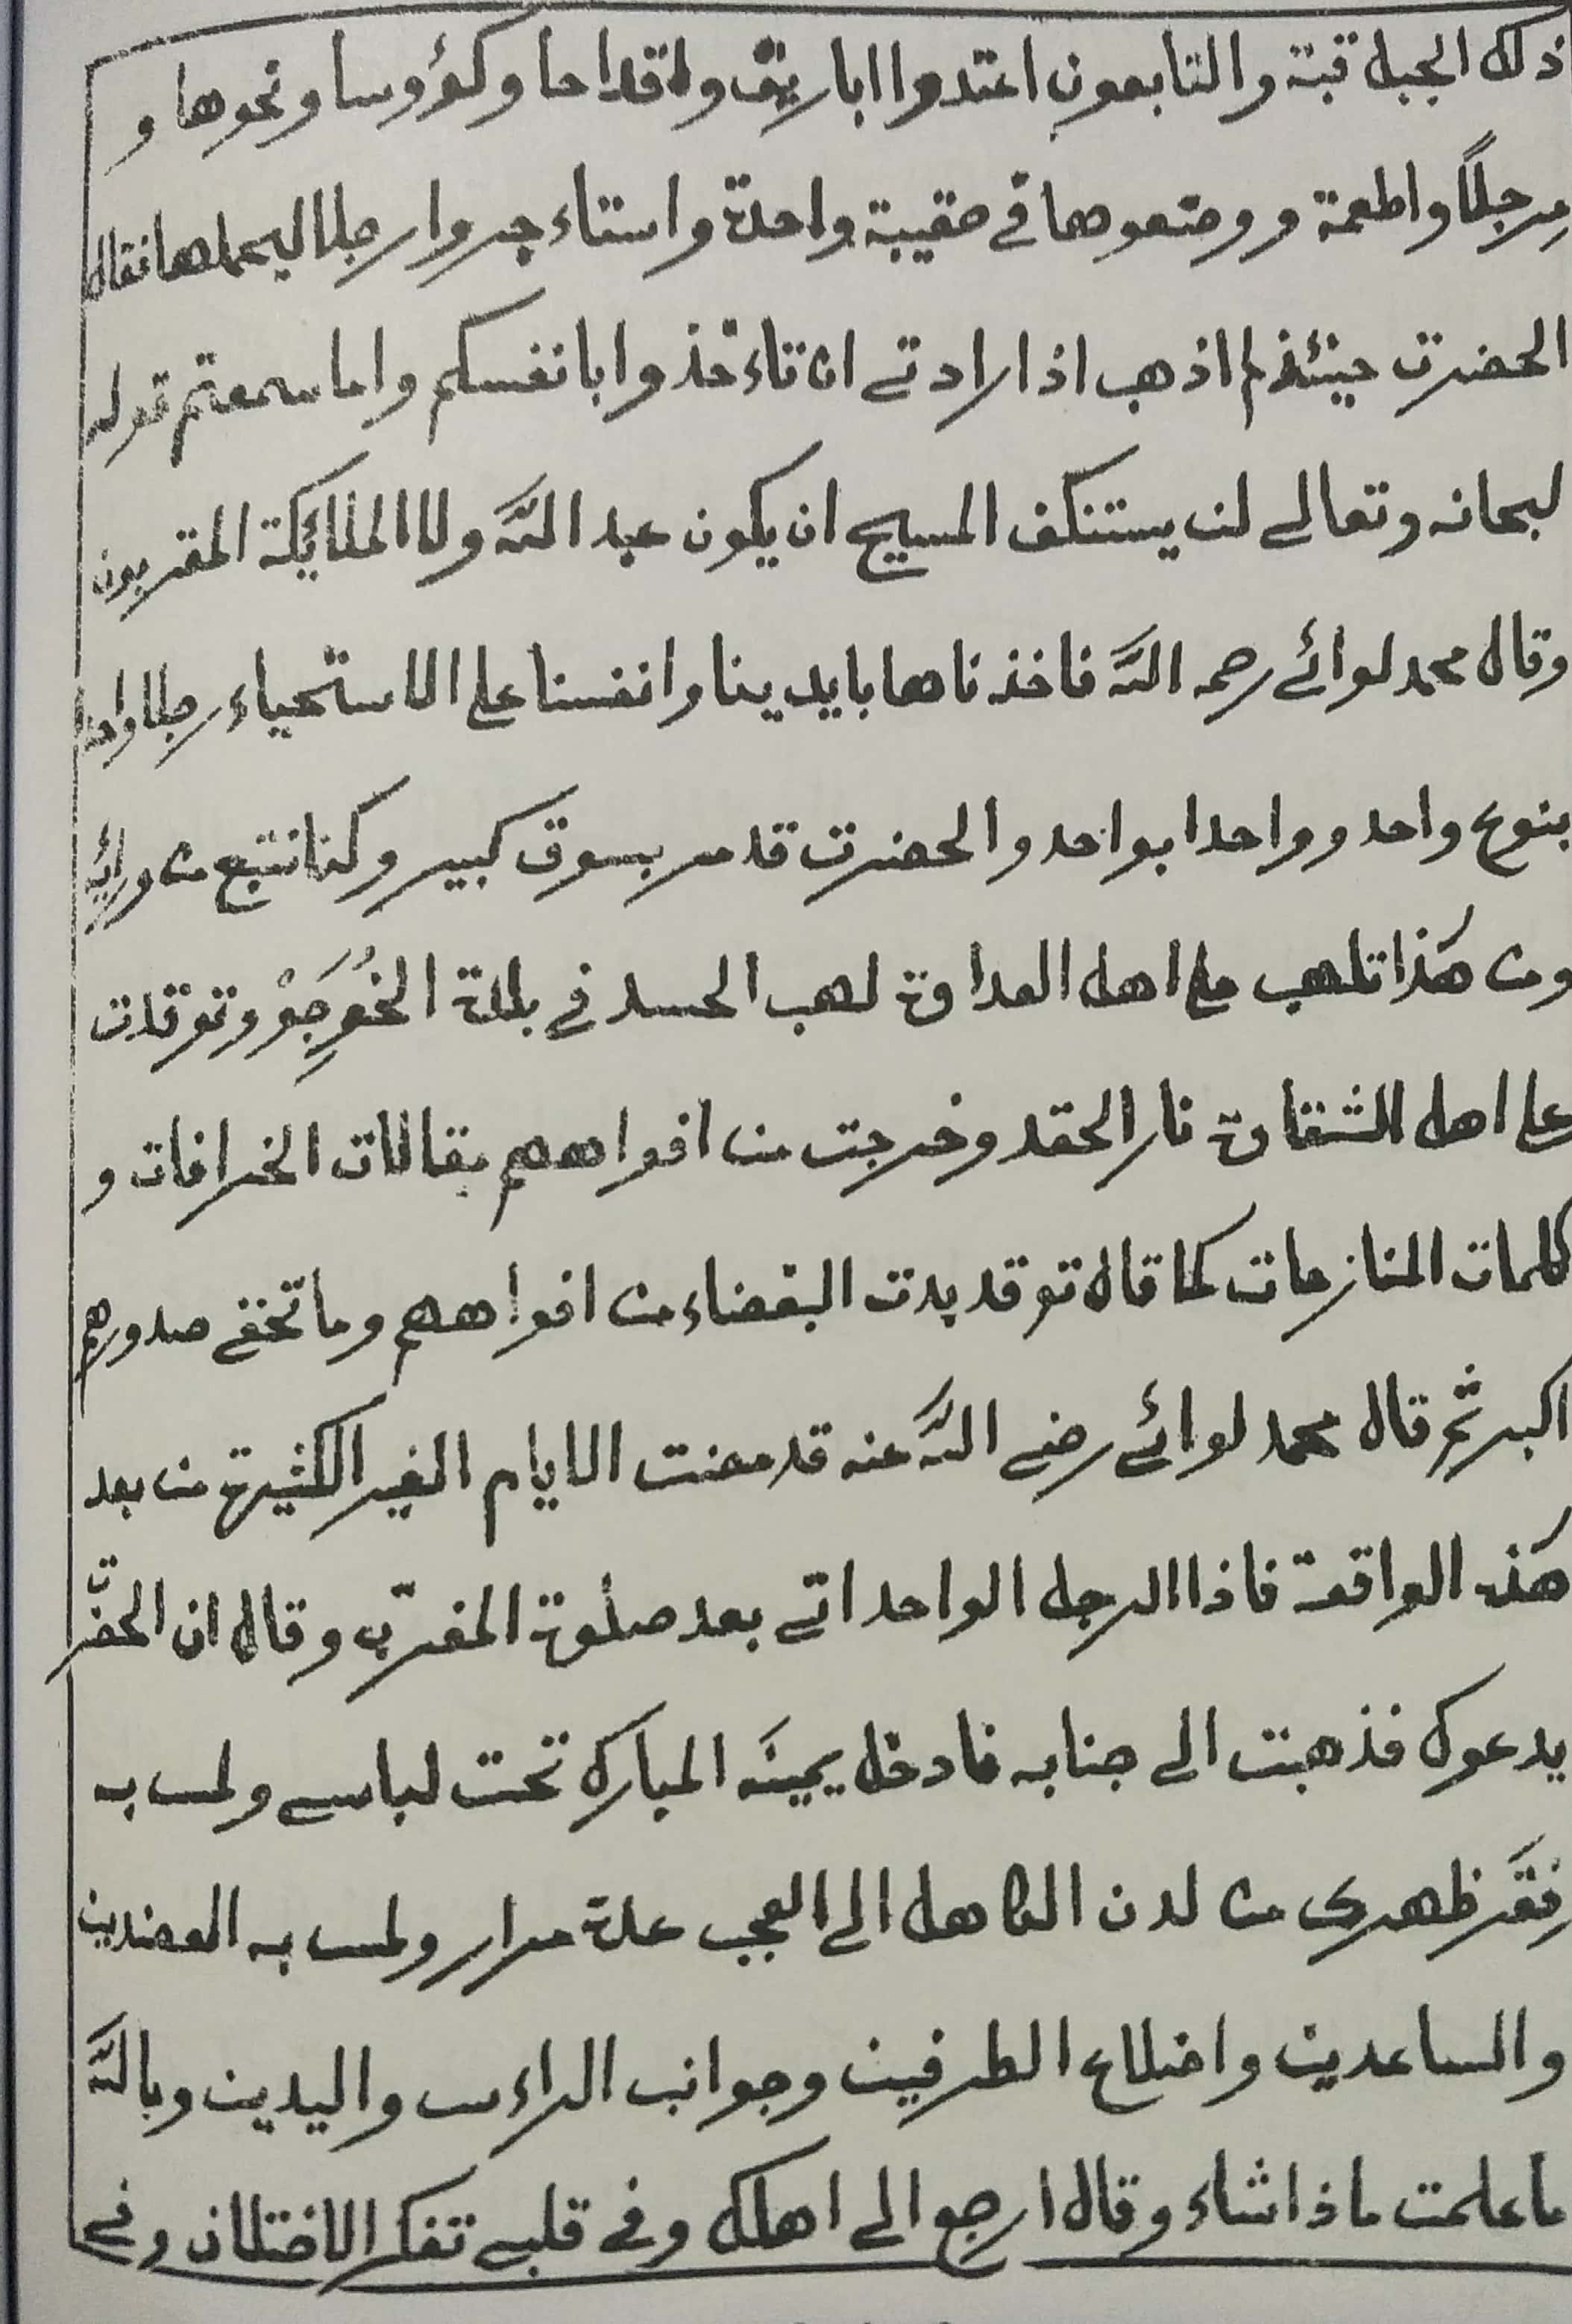 ذلك الجبل قبة والتابعون اعتدوا اباريق واقداحا وكؤوسا ونحوها و
مرجلًا واطعمة ووضعوها في حقيبة واحدة واستاءجروا رجلا ليحملها فقال
الحضرت حينئذ لم اذهب اذا رادتي ان تاءخذوا بانفسكم واما سمعتم قوله
سبحانه وتعالى لن يستنكف المسيح ان يكون عبد اللَّه ولا الملائكة المقربون
وقال محمد لوائے رحمه اللَّه فاخذناها بايدينا وانفسنا على الاستحياء رجلا واحدا
بنوع واحد وواحدا بواحد والحضرت قد مر بسوق كبير وكنا نتبع من ورائه
ومن هَذا تلهب على اهل العداوة لهب الحسد في بلدة الخُوجَوْ وتوقدت
على اهل الشقاوة نار الحقد وخرجت من افواههم بقالات الخرافات و
كلمات المنازعات كما قال تع قد بدت البغضاء من افواههم وما تخفى صدورهم
اكبر ثم قال محمد لوائے رضى اللَّه عنه قد مضت الايام الغير الكثيرة من بعد
هَذه الواقعة فاذا الرجل الواحد اتى بعد صلوة المغرب وقال ان الحضرت
يدعوك فذهبت الى جنابه فادخل يمينَه المبارك تحت لباسى ولمس به
فِقَر ظهرى من لدن الكاهل الى العجب عدة مرار ولمس به العضدين
والساعدين واضلاع الطرفين وجوانب الراءس واليدين وباللَّه
ما علمت ماذا شاء وقال ارجع الى اهلك وفى قلبى تفكر الاختلان وفى